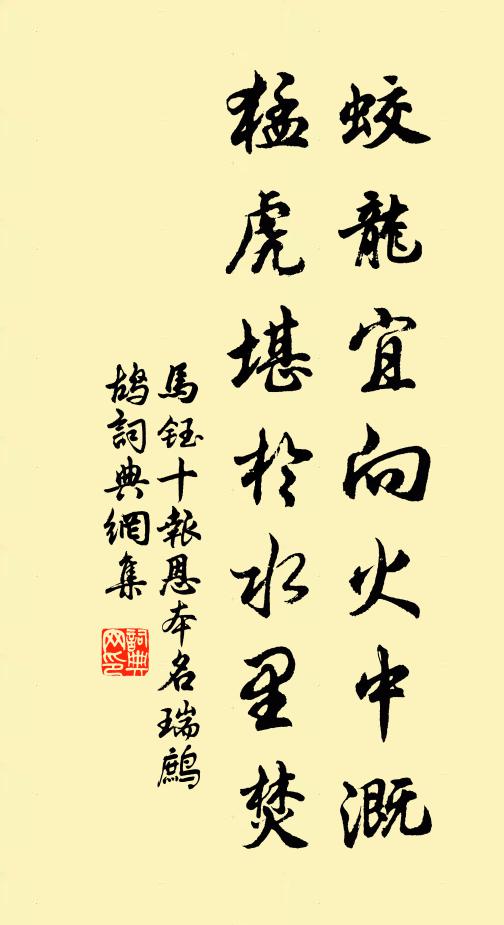 蛟龍宜向火中溉
猛虎堪於水里焚
馬鈺十報恩本名瑞鷓
鴣詞典網集
詞典
网印